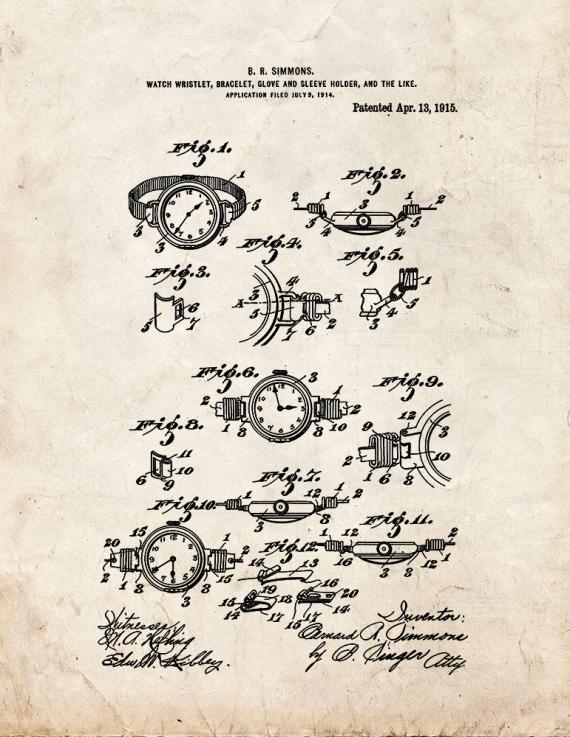 B. R. SIMMONS.
WATCH WRISTLET, BRACELET, GLOVE AND SLEEVE HOLDER, AND THE LIKE.
APPLICATION FILED JULY 9, 1914.
Patented Apr. 13, 1915.
Fig. 1.
1
5
5
3
4
Fig. 2.
2
1
3
1
2
5
4
4
5
Fig. 3.
6
5
7
Fig. 4.
3
4
A
A
5
2
7
6
Fig. 5.
1
5
3
4
Fig. 6.
3
2
1
2
1
8
8
10
Fig. 9.
12
9
3
10
2
1
6
8
Fig. 8.
11
10
6
9
Fig. 7.
2
1
12
1
2
3
8
Fig. 10.
15
1
20
2
2
1
8
8
15
3
Fig. 11.
1
12
1
2
2
16
3
8
12
Fig. 12.
14
13
16
19
18
20
15
14
17
15
17
14
Witnesses
Inventor:
by B. Singer Atty.